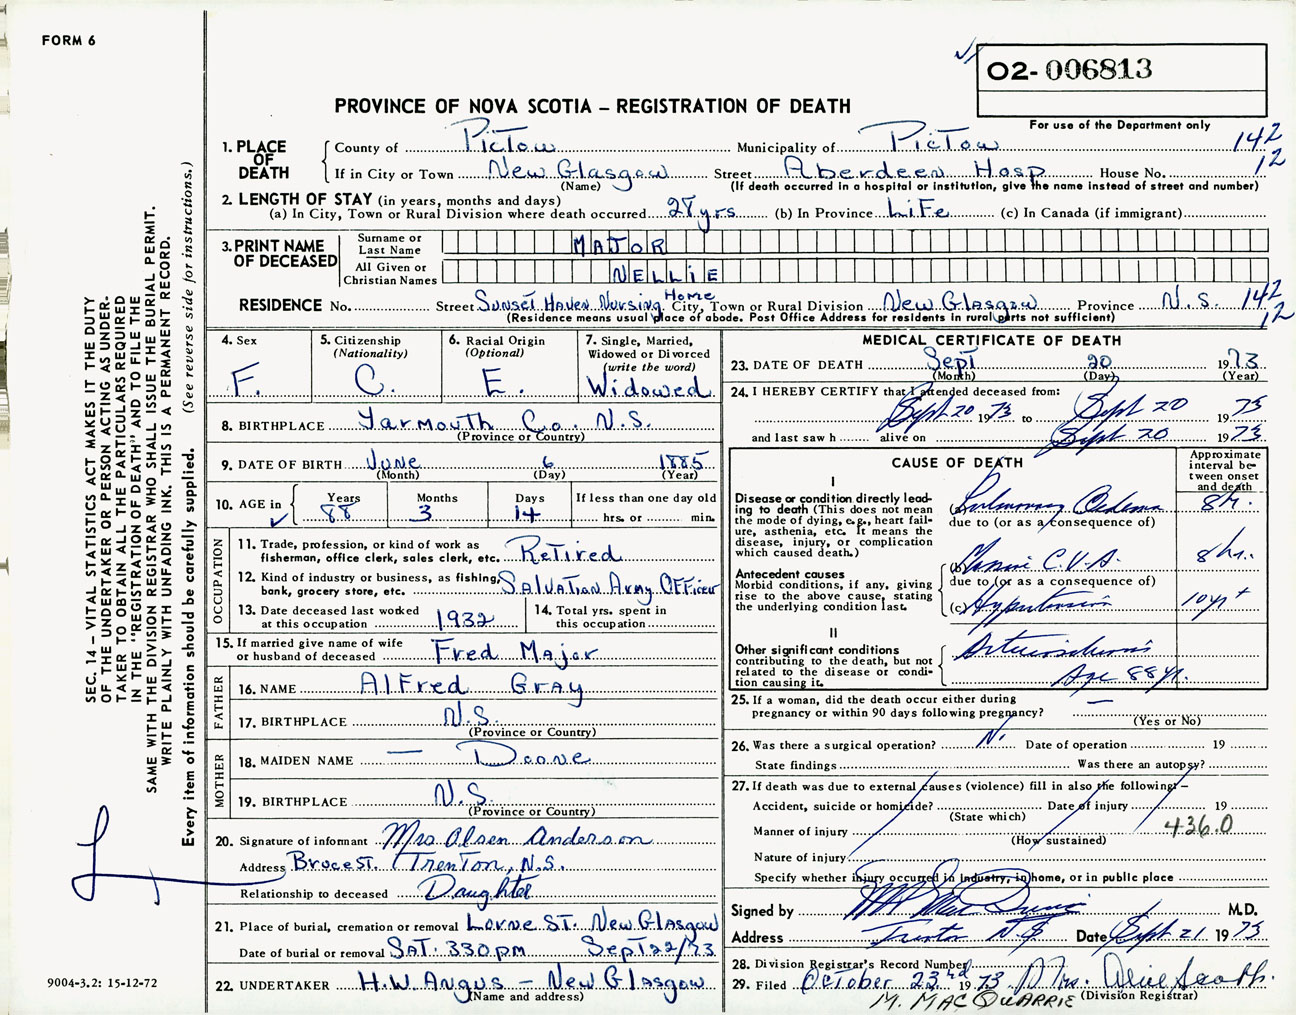 FORM 6
02-006813
PROVINCE OF NOVA SCOTIA – REGISTRATION OF DEATH
For use of the Department only
1. PLACE OF DEATH
County of Pictou Municipality of Pictou 142
If in City or Town New Glasgow Street Aberdeen Hosp House No. 12
(Name) (If death occurred in a hospital or institution, give the name instead of street and number)
2. LENGTH OF STAY (in years, months and days)
(a) In City, Town or Rural Division where death occurred 28 yrs (b) In Province LiFe (c) In Canada (if immigrant)
3. PRINT NAME OF DECEASED
Surname or Last Name MAJOR
All Given or Christian Names NELLIE
RESIDENCE No. Street Sunset Haven Nursing Home City, Town or Rural Division New Glasgow Province N.S. 142
(Residence means usual place of abode. Post Office Address for residents in rural parts not sufficient) 12
4. Sex F.
5. Citizenship (Nationality) C.
6. Racial Origin (Optional) E.
7. Single, Married, Widowed or Divorced (write the word) Widowed
8. BIRTHPLACE Yarmouth Co. N.S.
(Province or Country)
9. DATE OF BIRTH June 6 1885
(Month) (Day) (Year)
10. AGE in Years 88 Months 3 Days 14 If less than one day old hrs. or min.
OCCUPATION
11. Trade, profession, or kind of work as fisherman, office clerk, sales clerk, etc. Retired
12. Kind of industry or business, as fishing, bank, grocery store, etc. Salvation Army Officer
13. Date deceased last worked at this occupation 1932
14. Total yrs. spent in this occupation
15. If married give name of wife or husband of deceased Fred Major
FATHER
16. NAME Alfred Gray
17. BIRTHPLACE N.S.
(Province or Country)
MOTHER
18. MAIDEN NAME — Doane
19. BIRTHPLACE N.S.
(Province or Country)
20. Signature of informant Mrs Olsen Anderson
Address Bruce St. Trenton, N.S.
Relationship to deceased Daughter
21. Place of burial, cremation or removal Lorne St. New Glasgow
Date of burial or removal Sat. 330pm Sept 22/73
22. UNDERTAKER H.W. Angus – New Glasgow
(Name and address)
MEDICAL CERTIFICATE OF DEATH
23. DATE OF DEATH Sept 20 1973
(Month) (Day) (Year)
24. I HEREBY CERTIFY that I attended deceased from:
Sept 20 1973 to Sept 20 1973
and last saw h alive on Sept 20 1973
CAUSE OF DEATH
Approximate interval between onset and death
I
Disease or condition directly leading to death (This does not mean the mode of dying, e.g., heart failure, asthenia, etc. It means the disease, injury, or complication which caused death.)
Pulmonary Oedema 8 hr.
due to (or as a consequence of)
Antecedent causes
Morbid conditions, if any, giving rise to the above cause, stating the underlying condition last.
(b) C.V.A. 8 hrs.
due to (or as a consequence of)
(c) Hypertension 10 yr +
II
Other significant conditions contributing to the death, but not related to the disease or condition causing it.
Arteriosclerosis
Age 88 yr.
25. If a woman, did the death occur either during pregnancy or within 90 days following pregnancy? —
(Yes or No)
26. Was there a surgical operation? N. Date of operation 19
State findings Was there an autopsy?
27. If death was due to external causes (violence) fill in also the following:–
Accident, suicide or homicide? Date of injury 19
(State which)
Manner of injury 436.0
(How sustained)
Nature of injury
Specify whether injury occurred in industry, in home, or in public place
Signed by M.D.
Address Trenton N.S Date Sept 21 1973
28. Division Registrar's Record Number
29. Filed October 23rd 1973 Mrs. Alive
M. MACQUARRIE (Division Registrar)
SEC. 14 – VITAL STATISTICS ACT MAKES IT THE DUTY
OF THE UNDERTAKER OR PERSON ACTING AS UNDER-
TAKER TO OBTAIN ALL THE PARTICULARS REQUIRED
IN THE "REGISTRATION OF DEATH" AND TO FILE THE
SAME WITH THE DIVISION REGISTRAR WHO SHALL ISSUE THE BURIAL PERMIT.
WRITE PLAINLY WITH UNFADING INK. THIS IS A PERMANENT RECORD.
Every item of information should be carefully supplied. (See reverse side for instructions.)
9004-3.2: 15-12-72